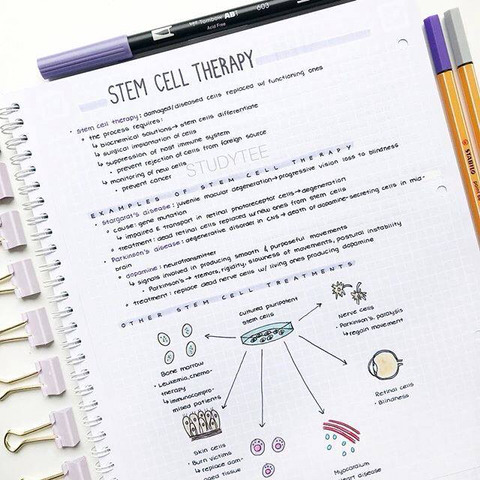 MET Tombow ABT
Acid Free
603
STABILO
STEM CELL THERAPY
Stem cell therapy: damaged/diseased cells replaced w/ functioning ones
• the process requires:
↳ biochemical solutions → stem cells differentiate
↳ surgical implantation of cells
↳ suppression of host immune system
• prevent rejection of cells from foreign source
↳ monitoring of new cells
• prevent cancer
STUDYTEE
EXAMPLES OF STEM CELL THERAPY
Stargardt's disease: juvenile macular degeneration → progressive vision loss to blindness
• cause: gene mutation
↳ impaired transport in retinal photoreceptor cells → degeneration
• treatment: dead retinal cells replaced w/ new ones from stem cells
Parkinson's disease: degenerative disorder in CNS → death of dopamine-secreting cells in mid-
brain
• dopamine: neurotransmitter
↳ signals involved in producing smooth & purposeful movements
• Parkinson's → tremors, rigidity, slowness of movements, postural instability
• treatment: replace dead nerve cells w/ living ones producing dopamine
OTHER STEM CELL TREATMENTS
cultured pluripotent
stem cells
Nerve cells
• Parkinson's, paralysis
↳ regain movement
Bone marrow
• Leukemia, chemo-
therapy
↳ immunocompro-
mised patients
Retinal cells
• Blindness
Skin cells
• Burn victims
↳ replace dam-
aged tissue
Myocardium
heart disease